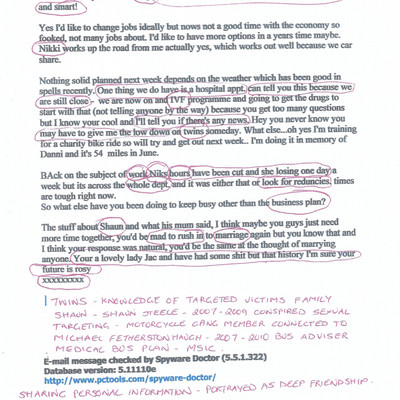 and smart!
Yes I'd like to change jobs ideally but nows not a good time with the economy so
fooked, not many jobs about. I'd like to have more options in a years time maybe.
Nikki works up the road from me actually yes, which works out well because we car
share.
Nothing solid planned next week depends on the weather which has been good in
spells recently. One thing we do have is hospital appt. can tell you this because we
are still close - we are now on and IVF programme and going to get the drugs to
start with that (not telling anyone by the way) because you get too many questions
but I know your cool and I'll tell you if there's any news. Hey you never know you
may have to give me the low down on twins someday. What else...oh yes I'm training
for a charity bike ride so will try and get out next week.. I'm doing it in memory of
Danni and it's 54 miles in June.
BAck on the subject of work Niks hours have been cut and she losing one day a
week but its across the whole dept, and it was either that or look for reduncies. times
are tough right now.
So what else have you been doing to keep busy other than the business plan?
The stuff about Shaun and what his mum said, I think maybe you guys just need
more time together, you'd be mad to rush in to marriage again but you know that and
I think your response was natural, you'd be the same at the thought of marrying
anyone. Your a lovely lady Jac and have had some shit but that history I'm sure your
future is rosy
xxxxxxxxx
TWINS - KNOWLEDGE OF TARGETED VICTIMS FAMILY
SHAUN - SHAUN STEELE - 2007-2009 CONSPIRED SEXUAL
TARGETING - MOTORCYCLE GANG MEMBER CONNECTED TO
MICHAEL FETHERSTONHAUGH - 2007-2010 BUS ADVISER
MEDICAL BUS PLAN - MSIC.
E-mail message checked by Spyware Doctor (5.5.1.322)
Database version: 5.11110e
http://www.pctools.com/spyware-doctor/
SHARING PERSONAL INFORMATION - PORTRAYED AS DEEP FRIENDSHIP.